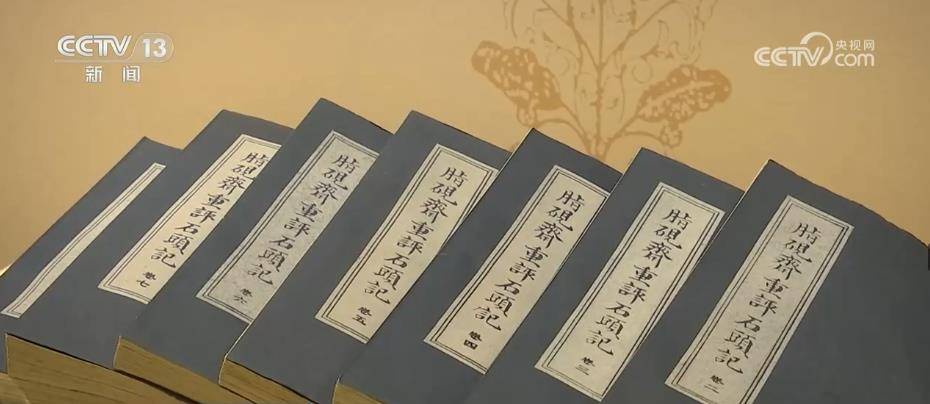 CCTV 13
新闻
央视网
CCTV.com
脂硯齋重評石頭記 卷七
脂硯齋重評石頭記 卷六
脂硯齋重評石頭記 卷五
脂硯齋重評石頭記 卷四
脂硯齋重評石頭記 卷三
脂硯齋重評石頭記 卷二